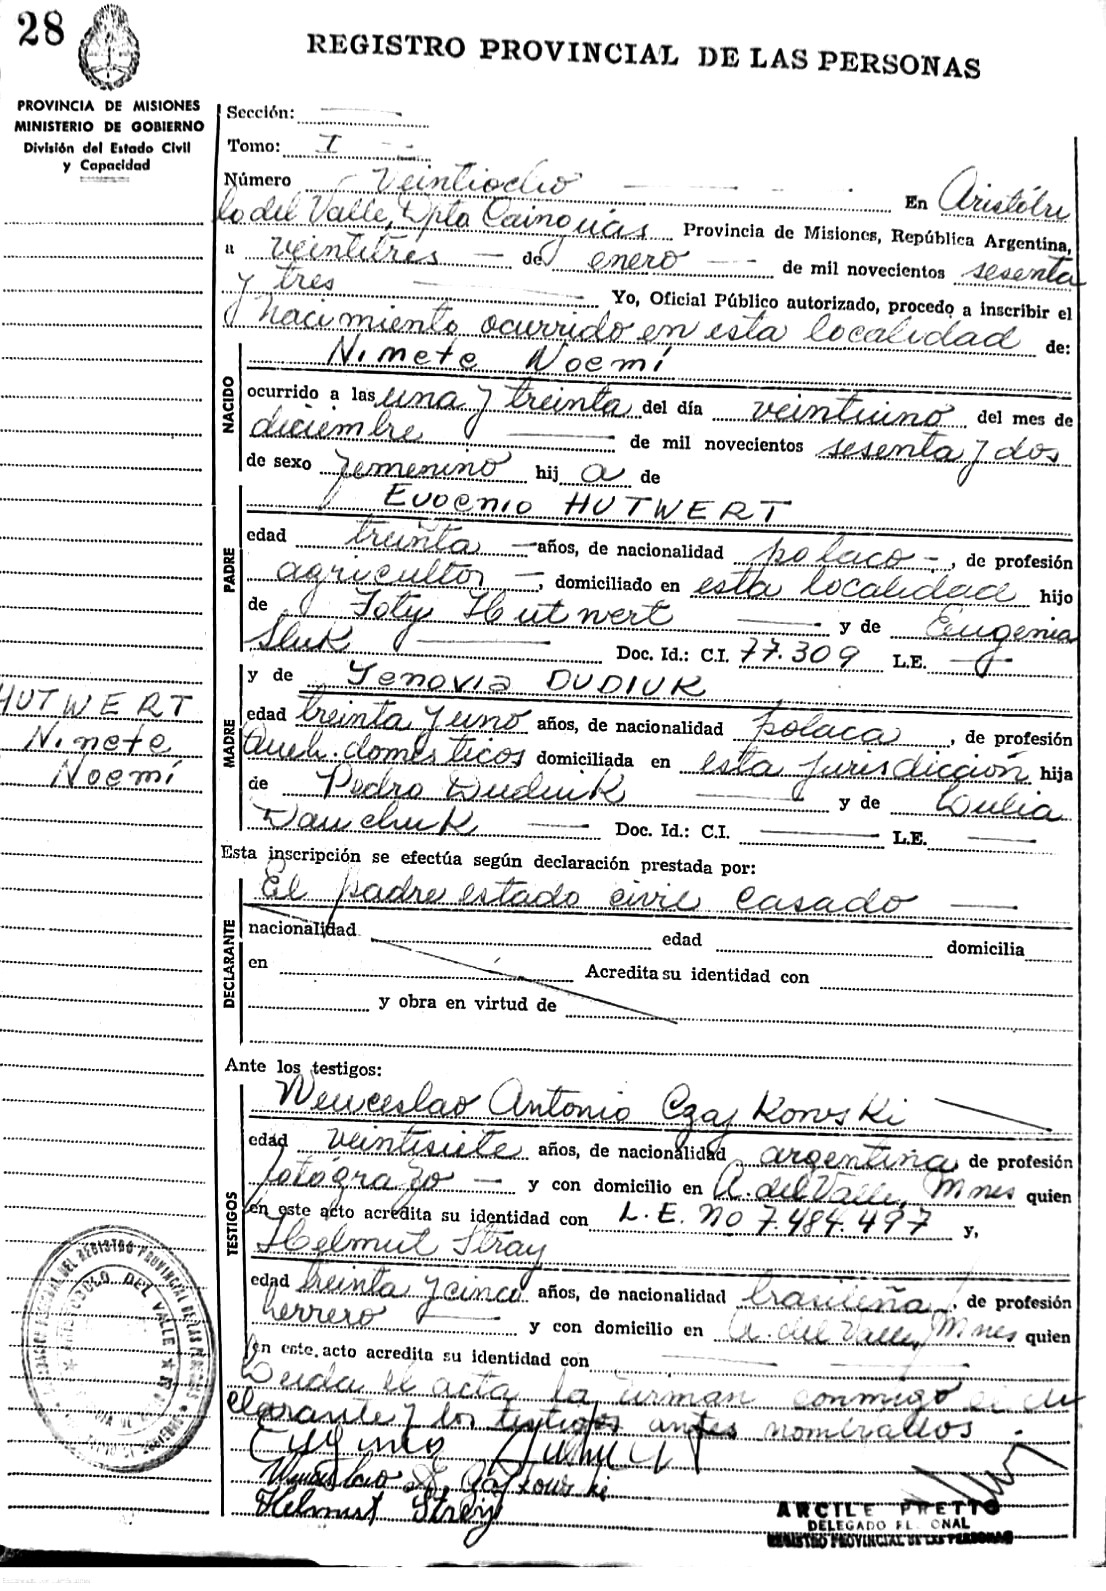 28
REGISTRO PROVINCIAL DE LAS PERSONAS
PROVINCIA DE MISIONES
MINISTERIO DE GOBIERNO
División del Estado Civil
y Capacidad
Sección:
Tomo: I
Número Veintiocho En Aristóbu
lo del Valle, Dpto Cainguás Provincia de Misiones, República Argentina,
a veintitres de enero de mil novecientos sesenta
y tres Yo, Oficial Público autorizado, procedo a inscribir el
nacimiento ocurrido en esta localidad de:
NACIDO
Ninete Noemí
ocurrido a las una y treinta del día veintiuno del mes de
diciembre de mil novecientos sesenta y dos
de sexo femenino hij a de
PADRE
Eugenio HUTWERT
edad treinta años, de nacionalidad polaco, de profesión
agricultor, domiciliado en esta localidad hijo
de Foty Hutwert y de Eugenia
Sluk Doc. Id.: C.I. 77.309 L.E.
MADRE
y de Jenovia DUDIUK
edad treinta y uno años, de nacionalidad polaca, de profesión
Queh. domésticos domiciliada en esta jurisdicción hija
de Pedro Dudiuk y de
Doc. Id.: C.I. L.E.
HUTWERT
Ninete
Noemí
Esta inscripción se efectúa según declaración prestada por:
DECLARANTE
El padre estado civil casado
nacionalidad edad domicilia
en Acredita su identidad con
y obra en virtud de
Ante los testigos:
TESTIGOS
Wenceslao Antonio Czajkowski
edad veintisiete años, de nacionalidad argentina, de profesión
fotógrafo y con domicilio en A. del Valle, Mnes quien
en este acto acredita su identidad con L. E. No 7.484.497 y,
Helmut Stray
edad treinta y cinco años, de nacionalidad brasileña, de profesión
herrero y con domicilio en A. del Valle, Mnes quien
en este acto acredita su identidad con
Leida el acta la firman conmigo el de
clarante y los testigos antes nombrados
Helmut Stray
ARCILE PRETTO
DELEGADO
REGISTRO PROVINCIAL DE LAS PERSONAS
DEL REGISTRO PROVINCIAL DE LAS PERSONAS
DEL VALLE